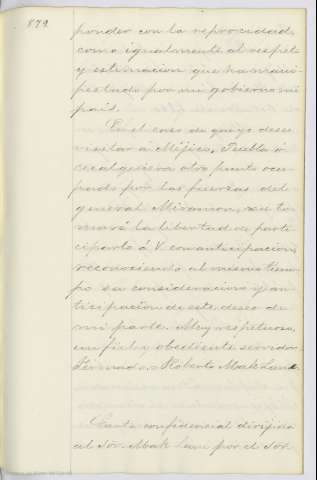 872.
ponder con la reprocidad
como igualmente al respeto
y estimacion que ha mani-
festado por mi gobierno mi
pais.
En el caso de que yo desee
visitar á Méjico, Puebla ó
cualquiera otro punto ocu-
pado por las fuerzas del
general Miramon, se to-
mará la libertad de parti-
ciparlo á V. con anticipacion,
reconociendo al mismo tiem-
po su consideracion y an-
ticipacion de este deseo de
mi parte. Muy respetuoso,
fiel y obediente servidor.
Firmado = Roberto MakLane
Carta confidencial dirijida
al Sor. Mak Lane por el Sor.